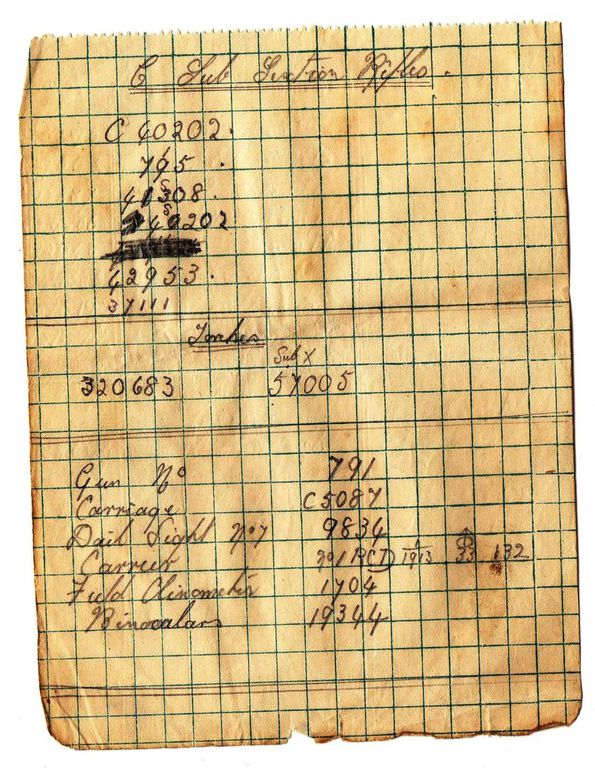 C Sub Section Rifles.
C 40202.
795.
41308.
40202
42953.
37111
Torches
Sub X
320683 57005
Gun No 791
Carriage C 5087
Dail Sight No 7 9834
Carrier No 1 RCD 1913 33 132
Field Clinometer 1704
Binoculars 19344